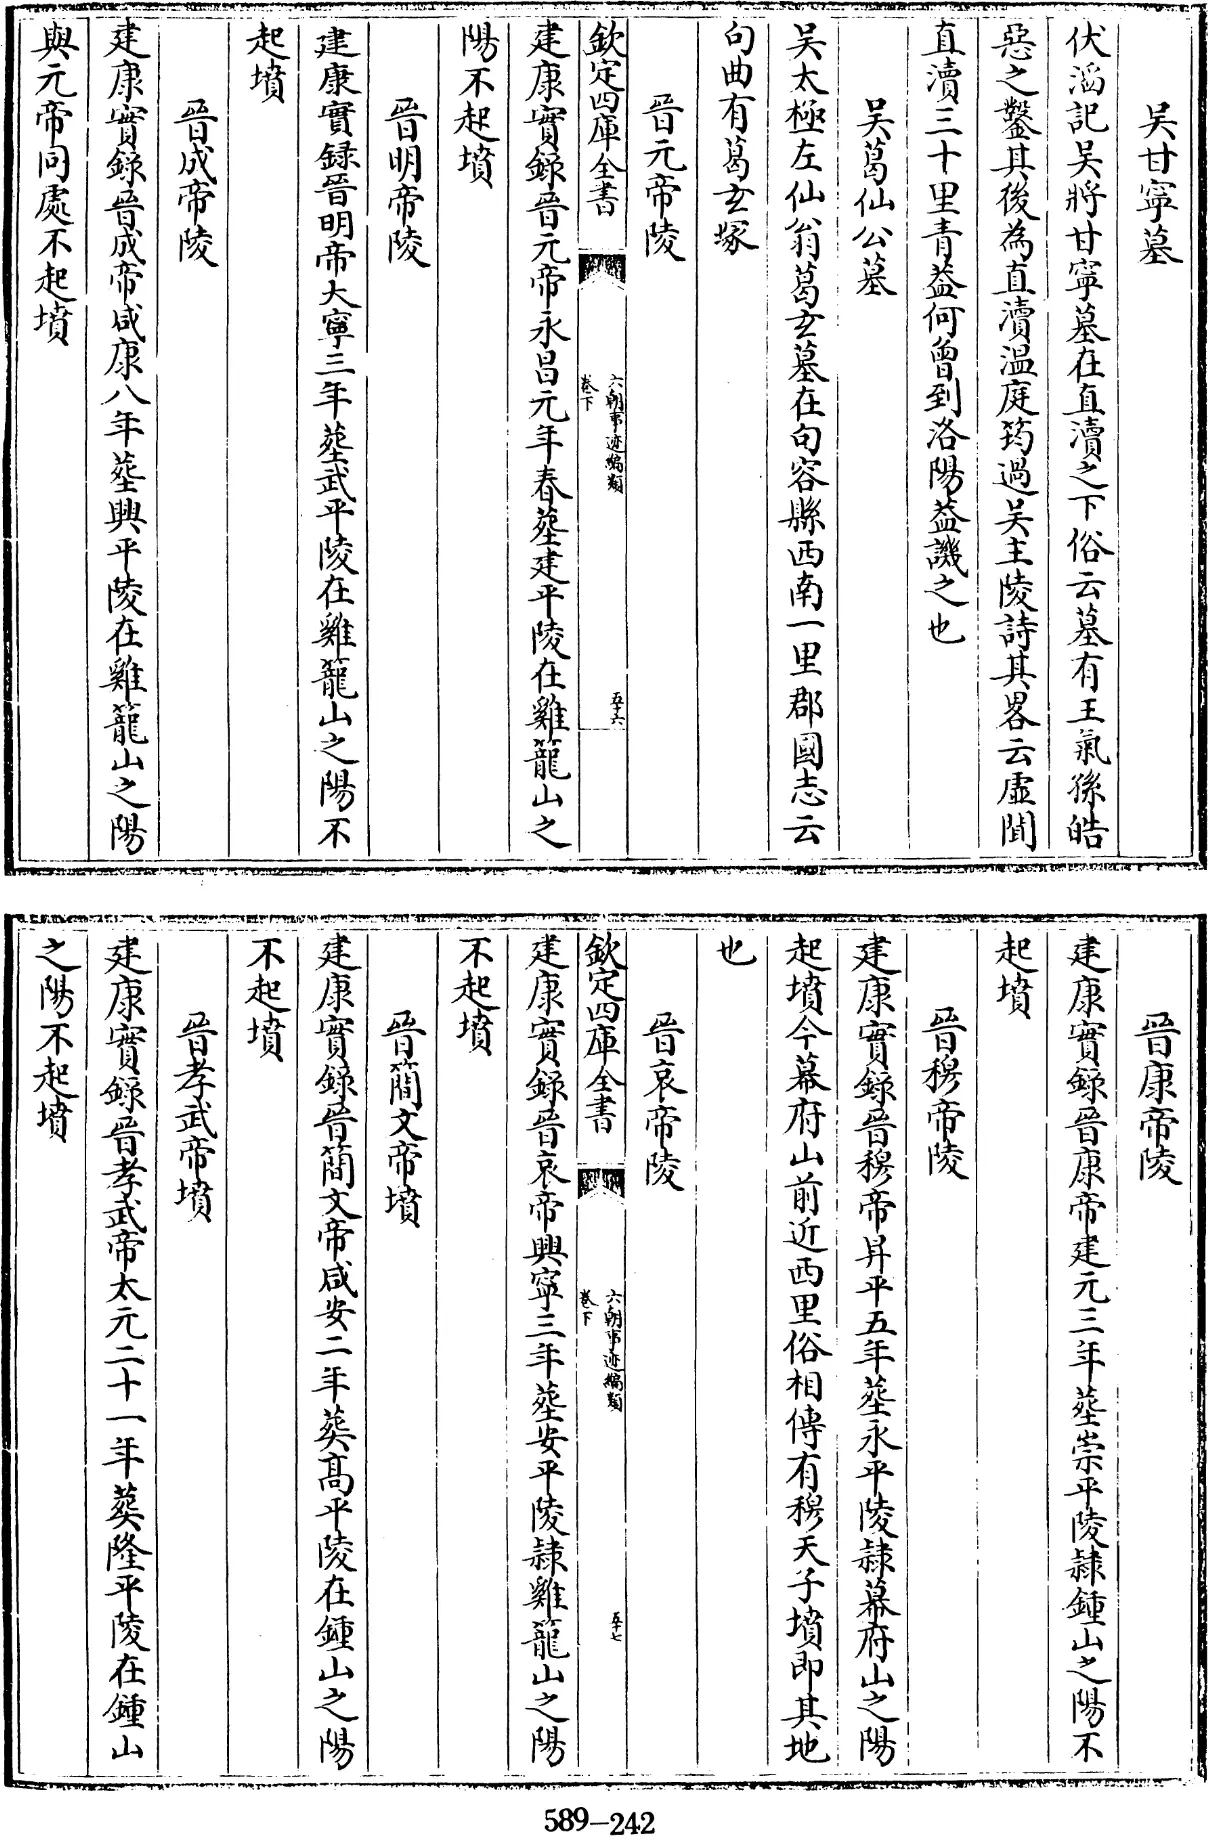 吴甘寧墓
伏滔記吴將甘寧墓在直瀆之下俗云墓有王氣孫皓
惡之鑿其後為直瀆温庭筠過吴主陵詩其畧云虚聞
直瀆三十里青葢何曾到洛陽葢譏之也
吴葛仙公墓
吴太極左仙翁葛玄墓在句容縣西南一里郡國志云
句曲有葛玄塚
晉元帝陵
欽定四庫全書
六朝事迹編類
卷下
五十六
建康實錄晉元帝永昌元年春塟建平陵在雞籠山之
陽不起墳
晉明帝陵
建康實録晉明帝大寧三年塟武平陵在雞籠山之陽不
起墳
晉成帝陵
建康實錄晉成帝咸康八年塟興平陵在雞籠山之陽
與元帝同處不起墳
晉康帝陵
建康實錄晉康帝建元三年塟崇平陵隷鍾山之陽不
起墳
晉穆帝陵
建康實錄晉穆帝昇平五年塟永平陵隷幕府山之陽
起墳今幕府山前近西里俗相傳有穆天子墳即其地
也
晉哀帝陵
欽定四庫全書
六朝事迹編類
卷下
五十七
建康實錄晉哀帝興寧三年塟安平陵隷雞籠山之陽
不起墳
晉簡文帝墳
建康實錄晉簡文帝咸安二年葬髙平陵在鍾山之陽
不起墳
晉孝武帝墳
建康實錄晉孝武帝太元二十一年葬隆平陵在鍾山
之陽不起墳
589-242